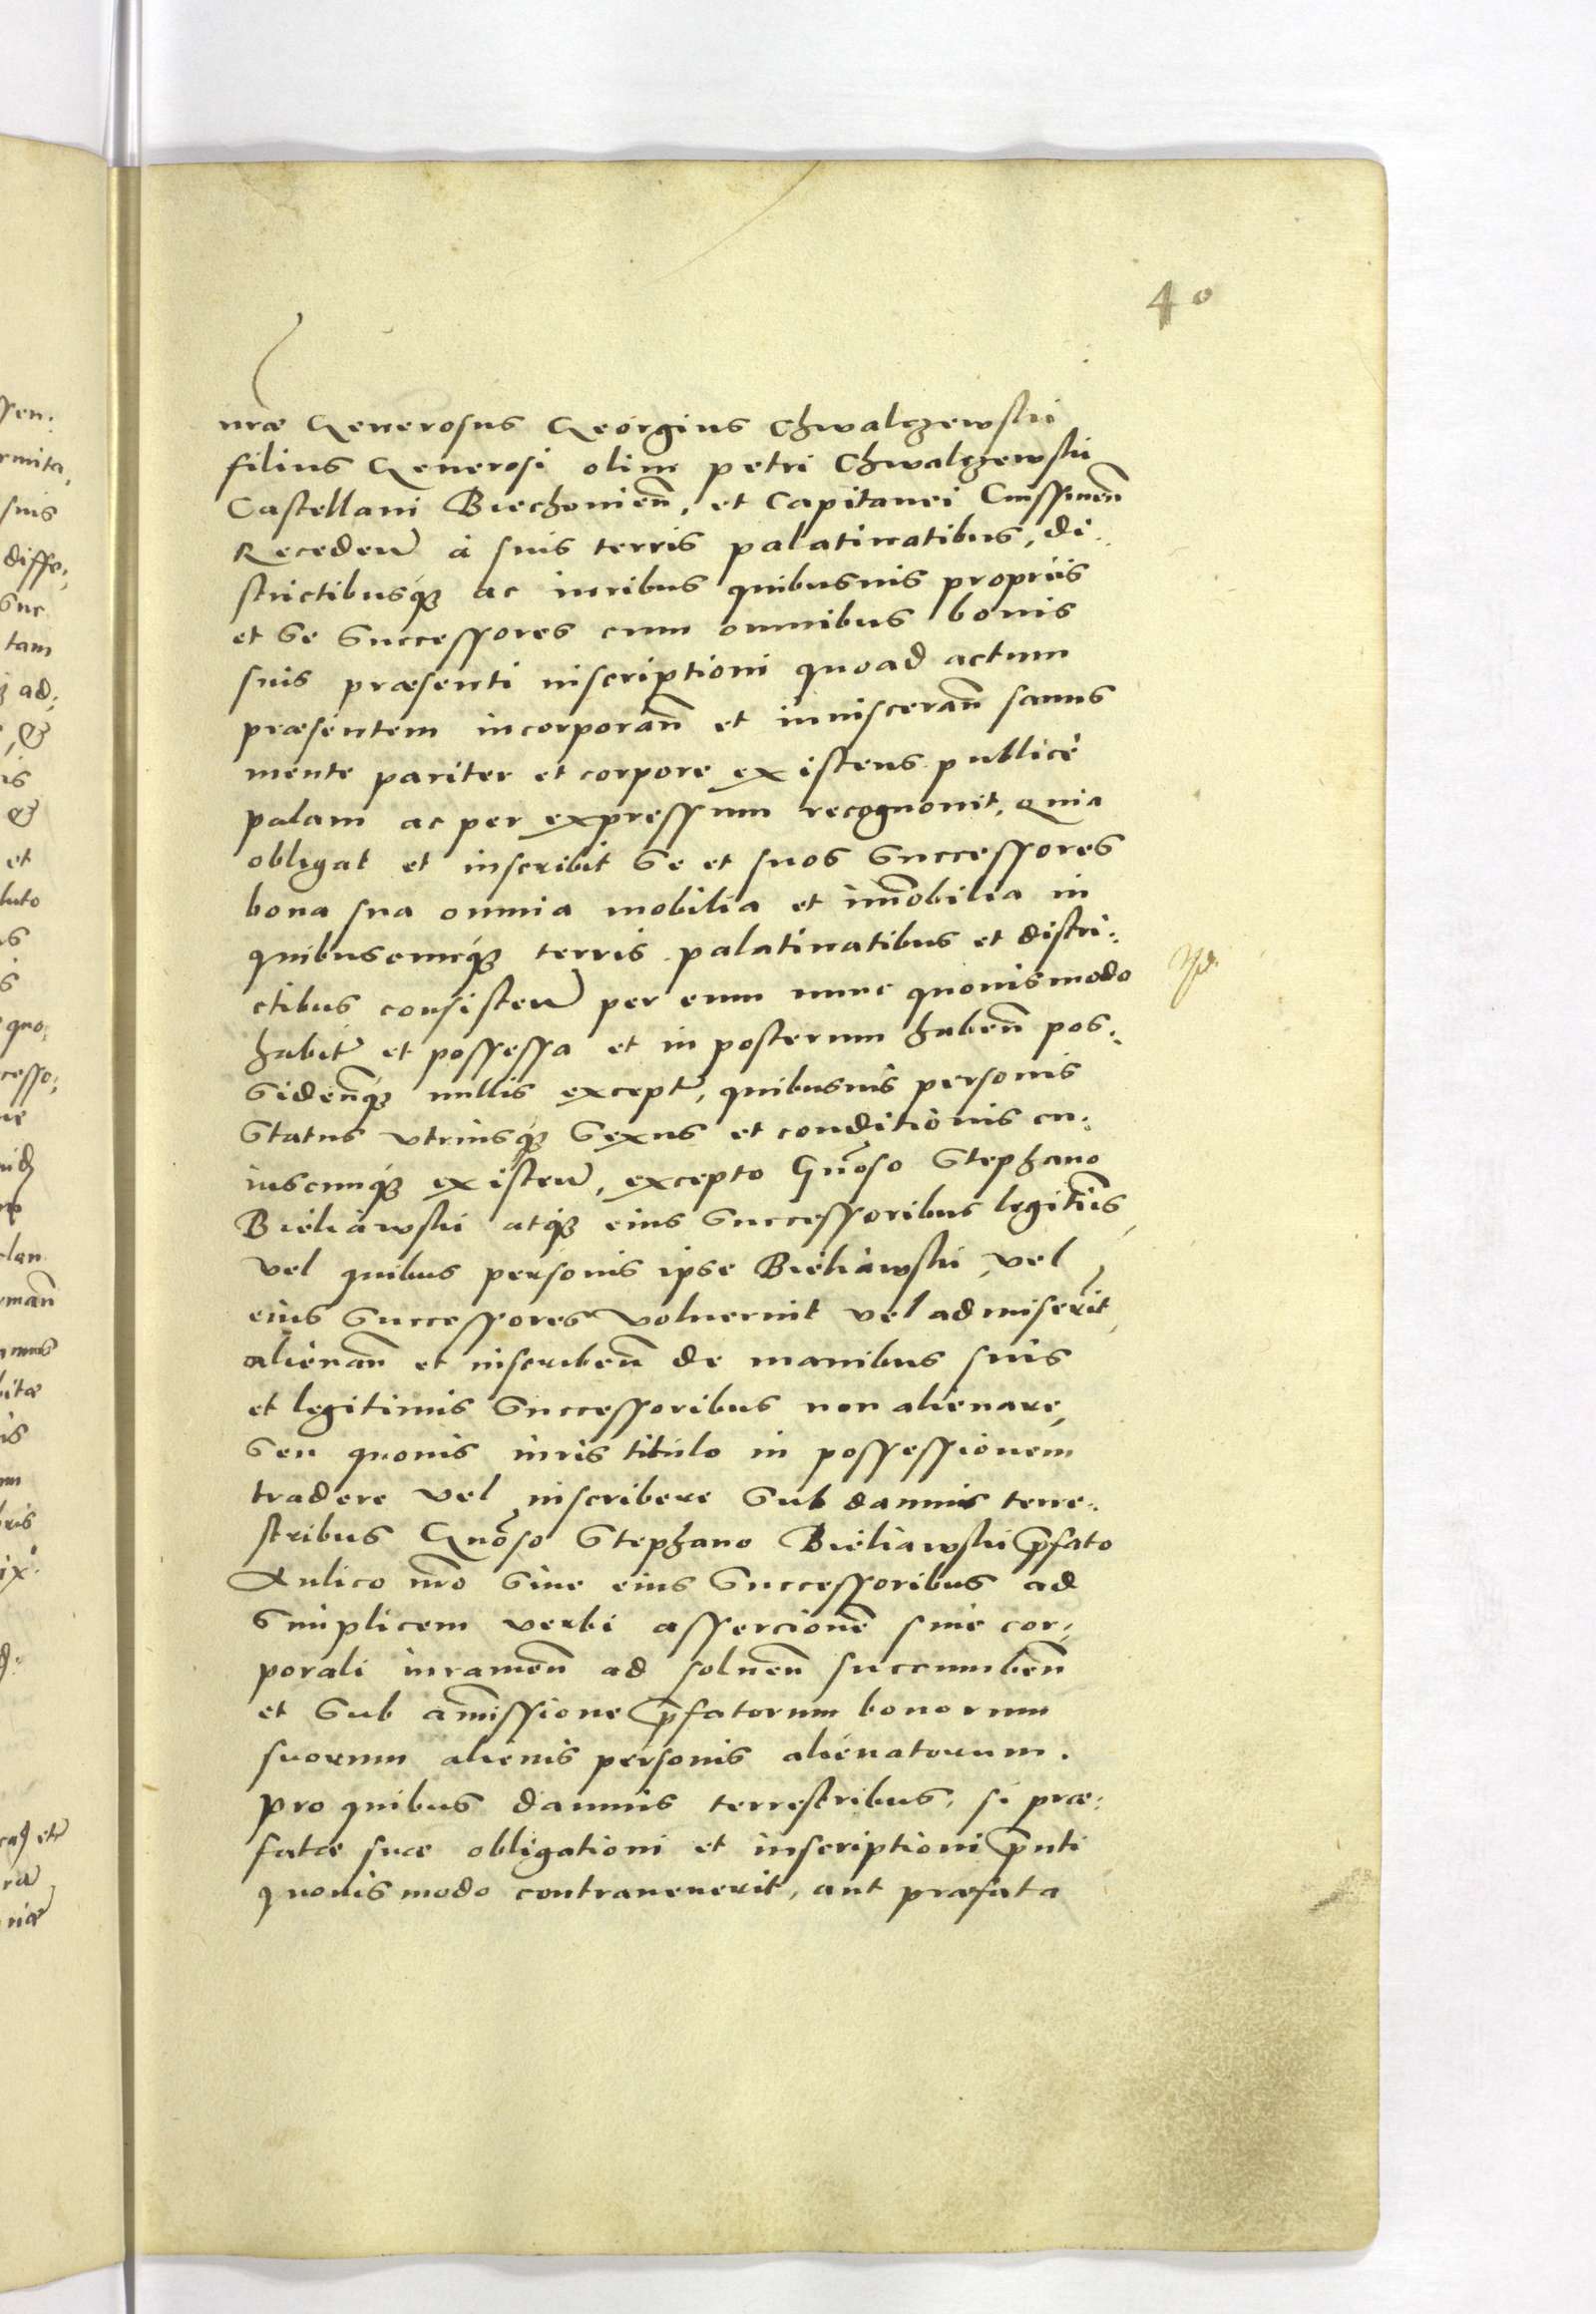 40
nrae Generosus Georgius Chwalczewski
filius Generosi olim petri Chwalczewski
Castellani Biechonień, et Capitanei
Receden̄ à suis terris palatinatibus, di:
strictibusq́ꝫ ac iuribus quibusuis proprijs
et se successores cum omnibus bonis
suis praesenti inscriptioni quoad actum
praesentem incorporan̄ et inuisceran̄ sanus
mente pariter et corpore existens publicè
palam ac per expressum recognouit, quia
obligat et inscribit se et suos successores
bona sua omnia mobilia et im̄obilia in
quibuscumq́ꝫ terris palatinatibus et distri:
ctibus consisten̄ per eum nunc quouismodo
habit̄ et possessa et in posterum haben̄ pos:
siden̄q́ꝫ nullis except̄, quibusuis personis
status vtriusq́ꝫ sexus et conditionis cu:
iuscumq́ꝫ existen̄, excepto Gn̄oso Stephano
Bieliawski atq́ꝫ eius successoribus legitīs
vel quibus personis ipse Bieliawski, vel
eius successores voluerint vel admiserīt,
alienan̄ et inscriben̄ de manibus suis
et legitimis successoribus non alienare,
seu quouis iuris titulo in possessionem
tradere vel inscribere sub damnis terre:
stribus Gn̄oso Stephano Bieliawski p̄fato
Aulico nr̄o siue eius successoribus ad
simplicem verbi assercionē sine cor:
porali iuramen̄ ad soluen̄ succumben̄
et sub am̄issione p̄fatorum bonorum
suorum alienis personis alienatorum.
pro quibus damnis terrestribus, si prae:
fatae suae obligationi et inscriptioni p̄nti
quouis modo contrauenerit, aut praefata